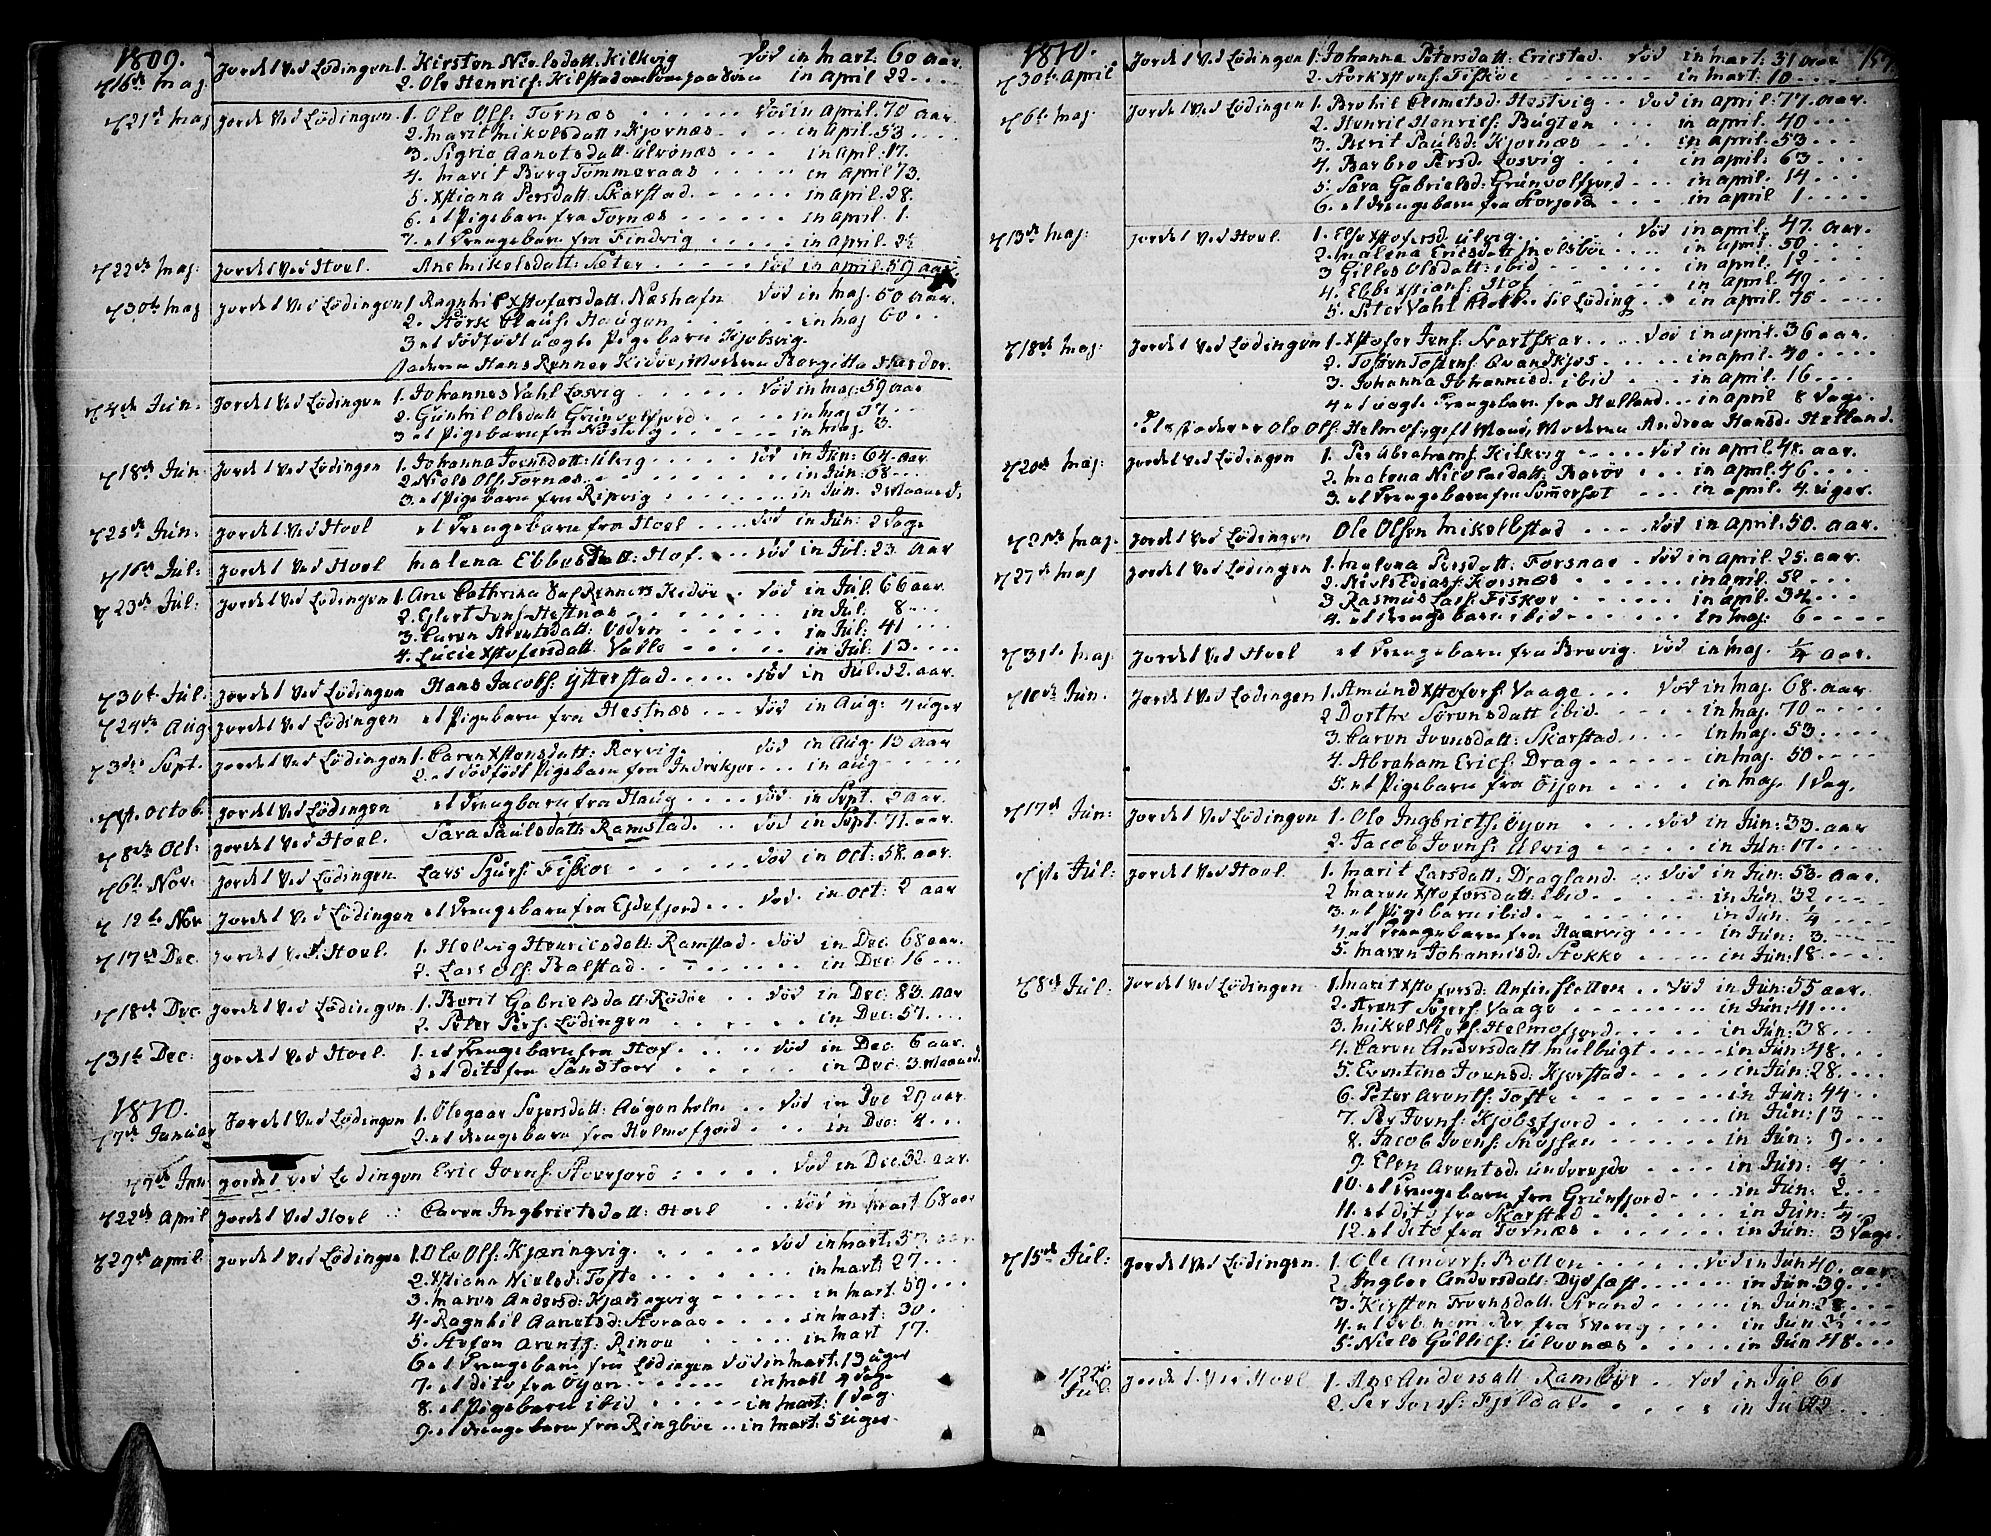 1809.
d 16de Maj Jordet ved Lödingen 1. Kirsten Nielsdatt: Kilkvig död in Mart: 60 aar.
2. Ole Henrics: Kilstad in April 22
d 21de Maj Jordet ved Lödingen 1. Ole Ols: Tornæs död in April. 70 aar
2. Marit Mikelsdatt: Kjørnæs in April. 53
3. Sigrid Aanetsdatt: Ulvönæs in April: 17.
4. Marit Borg Tømmeraas in April 73.
5. Xstiana Persdatt Skarstad in April. 28.
6. et Pigebarn fra Tornæs in April. 1.
7. et Drengebarn fra Findvig in April. 2½
d 22de Maj: Jordet ved Hoel. Ane Mikelsdatt: Sæter död in April. 59 aar
d 30te Maj Jordet ved Lödingen 1 Ragnhil Xstofersdatt: Næshafn död in Maj. 50 aar.
2. Störk Claus: Haugen in Maj 60
3 et dödfödt uægte Pigebarn Kjobsvig.
Faderen Hans Renner Kidöe, Moderen Borgitta Harder.
d 4de Jun. Jordet ved Lödingen 1. Johannes Vahl Losvig död in Maj: 59 aar
2. Gunhil Olsdatt: Grünvolfjord in Maj 37
3 et Pigebarn fra Nöstvig in Maj. 3.
d 18de Jun: Jordet ved Lödingen 1. Johanna Joensdatt: Ulvig död in Jun: 64. aar
2 Niels Ols: Tornæs in Jun: 68
3. et Pigebarn fra Ripvig in Jun. 3 Maaned.
d 25de Jun: Jordet ved Hoel et Drengebarn fra Hoel död in Jun: 2 Dage
d 16de Jul: Jordet ved Hoel Malena Ebbesdatt: Hof död in Jul: 23 aar
d 23de Jul: Jordet ved Lödingen 1. Ane Cathrina Sal Renners Kidöe död in Jul. 66 aar.
2. Glert Jens: Hestnæs in Jul. 8
3. Caren Arentsdatt: Voden in Jul: 41
4. Lucie Xstofersdatt. Valle in Jul: 13
d 30te Jul. Jordet ved Lödingen Hans Jacobs: Ytterstad död in Jul. 32. aar.
d 24de Aug Jordet ved Lödingen et Pigebarn fra Hestnæs död in Aug: 4 uger
d 3die Sept. Jordet ved Lödingen 1. Caren Xstensdatt: Rorvig död in Aug 13 aar
2. et dödfödt Pigebarn fra Indrekjør in Aug
d 1ste Octob. Jordet ved Lödingen et Drengbarn fra Haug död in Sept. 2 aar.
d 8de Oct: Jordet ved Hoel. Sara Paulsdatt: Ramstad död in Sept. 71. aar.
d 6te Nov. Jordet ved Lödingen Lars Sjurs: Fiskör död in Oct: 58. aar.
d 12te Nov Jordet ved Lödingen et Drengebarn fra Ejdefjord död. in Oct: 2 aar
d 17de Dec. Jordet ved Hoel. 1. Helvig Henricsdatt: Ramstad död in Dec. 68 aar.
2. Lars Ols: Balstad in Dec 16
d 18de Dec. Jordet ved Lödingen 1. Berit Gabrielsdatt: Rödöe död in Dec: 83. aar
2. Peter Pers: Lödingen in Dec: 57.
d 31te Dec: Jordet ved Hoel. 1. et Drengebarn fra Hof död in Dec 6 aar.
2 et dito fra Sandtorv in Dec. 3 Maaned.
1810.
d 7de Januar Jordet ved Lödingen 1. Olegaar Sejersdatt: Augenholm död in Dec 29 aar.
2. et Drengebarn fra Helmofjord in Dec: 4
d 7de Jan Jordet ved Lödingen Eric Joens: Storfjord död in Dec. 32. aar.
d 22de April Jordet ved Hoel Caren Ingbrietsdatt: Hoel död in Mart 68 aar
d 29de April: Jordet ved Lödingen 1. Ole Ols: Kjæringvig död in Mart. 37. aar
2. Xstiana Nielsd: Tofte in Mart: 27
3. Maren Andersd: Kjæringvig in Mart. 59
4. Ragnhil Aanetsd: Storaae in Mart: 30.
5. Steten Arents: Rinöe in Mart 17.
6 et Drengebarn fra Lödingen död in Mart: 13 uger
7. et dito fra Öyen in Mart 4 Dage
8. et Pigebarn ibid in Mart: 1 Dag.
9. et Drengebarn fra Ringböe in Mart: 5 uger.
1810. 157
d 30te April Jordet ved Lödingen 1. Johanna Petersdatt: Ericstad. död in Mart. 31 aar
2. Störk Xstens: Fiskör in Mart. 10
d 6te Maj: Jordet ved Lödingen 1. Brohil Clemetsd: Hestvig död in April: 77. aar.
2. Henric Henrics: Bugten in April. 40
3. Berit Paulsd: Kjörnæs in April. 53
4. Barbro Persd: Losvig in April. 63
5. Sara Gabrielsd: Grünvolfjord in April. 14
6. et Drengebarn fra Storjord in April 1
d 13de Maj: Jordet ved Hoel. 1. Else Xstofersd Ulvig. död in April. 47. aar.
2. Malena Ericsdatt: Melsböe in April. 50
3 Gilles Olsdatt: ibid in April. 12
4. Ebbe Xstians: Hof in April. 49
5. Peter Vahl Klokker til Löding in April. 75
d 18de Maj: Jordet ved Lödingen 1. Xstofer Jens: Svartskar död in April. 36 aar.
2. Tosten Tostens: Evandkjos in April. 40
3. Johanna Johannisd. ibid in April. 16
4 et uægte Drengebarn fra Helland in April 8 Dage.
Faderen Ole Ols: Helmofs: gift Mand, Moderen Andrea Hansd: Helland.
d 20de Maj: Jordet ved Lödingen 1. Per Abrahams: Kilkvig död in April. 41. aar.
2. Malena Nicolaisdatt: Baröe in April. 46
3. et Drengebarn fra Sommerset in April 4. uger.
d 21de Maj. Jordet ved Lödingen Ole Olsen Mikelbstad död in April. 50. aar.
d 27de Maj Jordet ved Lödingen 1. Malena Persdatt: Forsnæs död in April. 25. aar.
2. Niels Edias: Korsnæs in April. 52
3 Rasmus Lars: Fiskör in April. 34
4. et Drengebarn ibid in Maj. 6
d 31te Maj Jordet ved Hoel et Drengebarn fra Brovig död in Maj. ¼ aar.
d 10de Jun: Jordet ved Lödingen 1. Amund Xstofers: Vaage död in Maj. 68. aar
2 Dorthe Sörensdatt ibid. in Maj. 70
3. Caren Joensdatt: Skarstad in Maj. 53
4. Abraham Erics: Drag in Maj. 50
5. et Pigebarn fra Öijen in Maj. 1 Dag.
d 17de Jun: Jordet ved Lödingen 1. Ole Ingbriets: Öyen död in Jun: 33. aar
2. Jacob Joens: Ulvig in Jun: 17
d 1ste Jul: Jordet ved Hoel 1. Marit Larsdatt: Dragland död in Jun: 53. aar
2 Maren Xstofersdatt: ibid. in Jun: 32
3. et Pigebarn ibid in Jun: ¼
4. et Drengebarn fra Haarvig in Jun: 3.
5. Maren Johannisd: Stokke in Jun: 18
d 8de Jul: Jordet ved Lödingen 1. Marit Xstofersd: Anfinsletten död in Jun: 55 aar.
2. Arent Sejers: Vaage in Jun: 41
3. Mikel Ols: Helmofjord in Jun: 38
4. Caren Andersdatt: Mulbugt in Jun: 48.
5. Eventina Joensd: Kjerstad in Jun: 28.
6. Peter Arents: Tofte in Jun: 44
7. Per Joens: Kjobsfjord in Jun: 13
8. Jacob Joens: in Jun: 9
9. Elen Arentsd: Undereyde in Jun: 4
10. et Drengebarn fra Grunfjord in Jun: 2
11. et dito fra Skarstad in Jun: ¼
12. et dito fra Tornæs in Jun: 3 Dage.
d 15de Jul: Jordet ved Lödingen. 1. Ole Anders: Botten död in Jun 40. aar
2. Ingbor Andersdatt: in Jun: 39.
3. Kirsten Troensdatt. Strand in Jun: 28.
4. et fra Sverig in Jun: 3½
5. Niels Gullics: Ulvönæs in Jun: 48
d 22de Jul. Jordet ved Hoel 1. Ane Andersdatt Ramböe död in Jul 61
2. Per Joens: Fjeldal in Jul 22